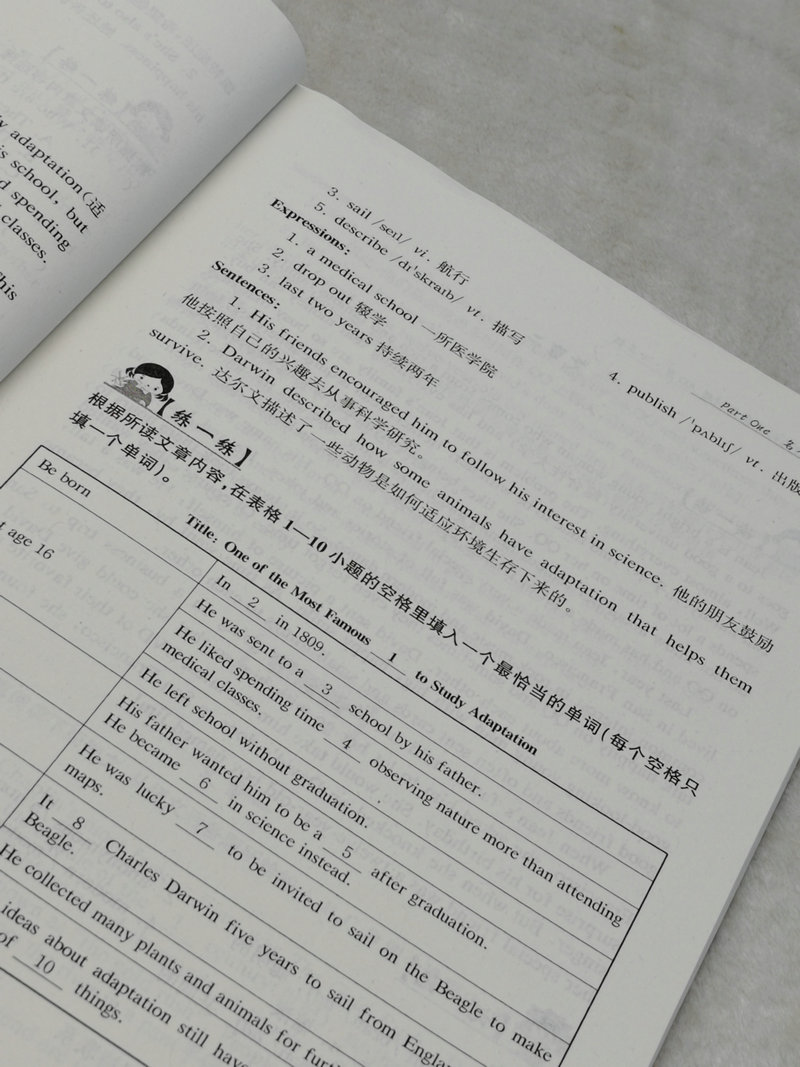 y adaptation(适
is school, but
d spending
classes.
his
Part One
3. sail /seɪl/ vi. 航行
4. publish /ˈpʌblɪʃ/ vt. 出版
5. describe /dɪˈskraɪb/ vt. 描写
Expressions:
1. a medical school 一所医学院
2. drop out 辍学
3. last two years 持续两年
Sentences:
1. His friends encouraged him to follow his interest in science. 他的朋友鼓励
他按照自己的兴趣去从事科学研究。
2. Darwin described how some animals have adaptation that helps them
survive. 达尔文描述了一些动物是如何适应环境生存下来的。
【练一练】
根据所读文章内容,在表格1—10小题的空格里填入一个最恰当的单词(每个空格只
填一个单词)。
Title: One of the Most Famous 1 to Study Adaptation
Be born
In 2 in 1809.
t age 16
He was sent to a 3 school by his father.
He liked spending time 4 observing nature more than attending
medical classes.
He left school without graduation.
His father wanted him to be a 5 after graduation.
He became 6 in science instead.
He was lucky 7 to be invited to sail on the Beagle to make
maps.
It 8 Charles Darwin five years to sail from England
Beagle.
He collected many plants and animals for furth
ideas about adaptation still have
of 10 things.